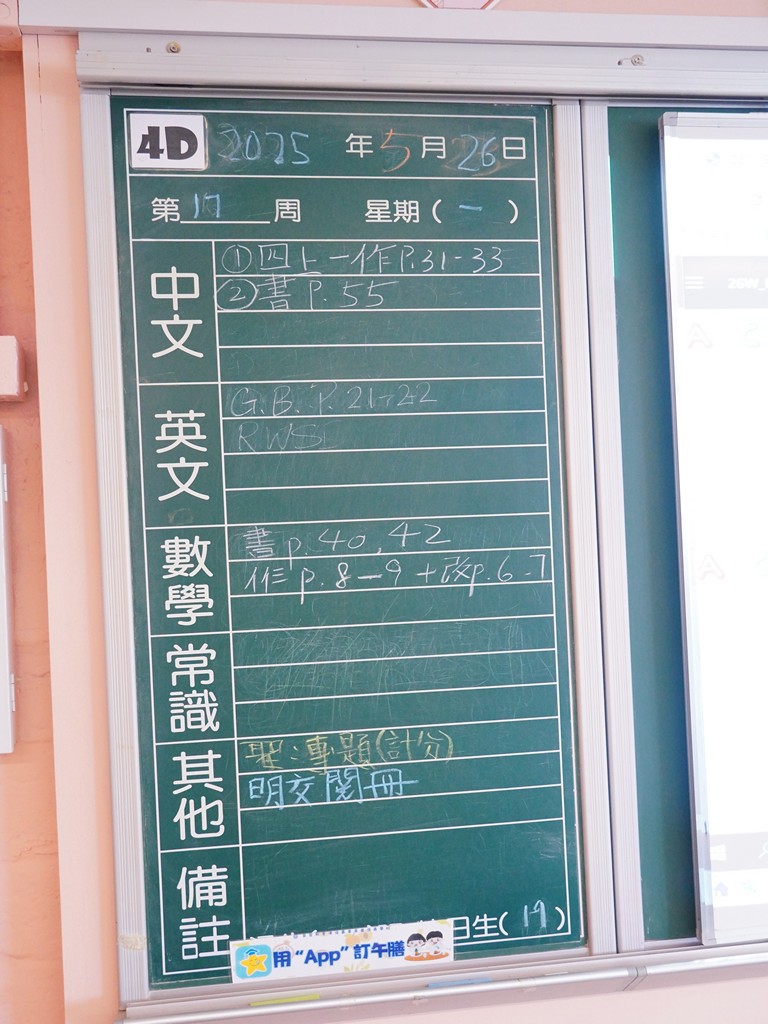 4D 2025 年 5 月 26 日
第 17 周 星期 ( 一 )
中文
① 四上一作 P.31-33
② 書 P.55
英文
G.B. P.21-22
數學
書 p.40, 42
作 p.8-9 + 改 p.6-7
常識
其他
聖：專題(計分)
明交閱冊
備註
日生( 19 )
用 “App” 訂午膳